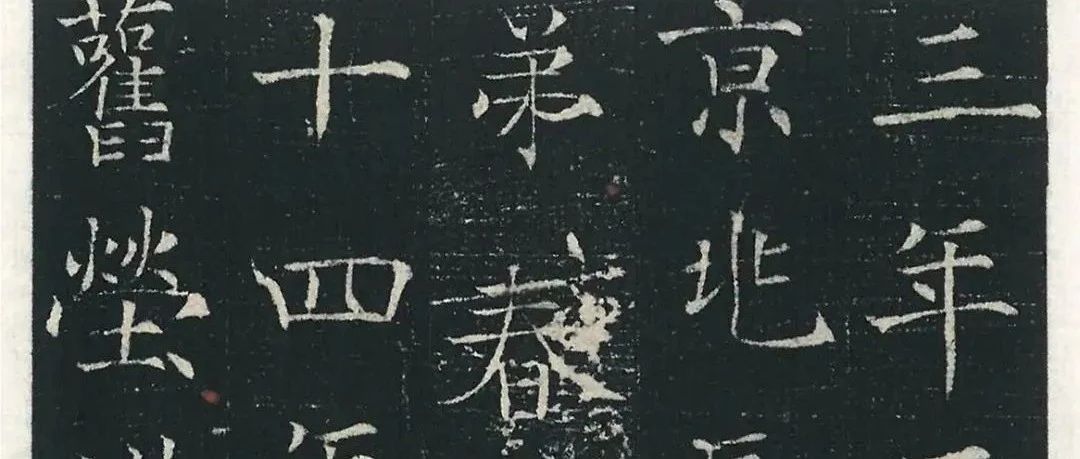 三年
京兆
弟春
十四
舊塋